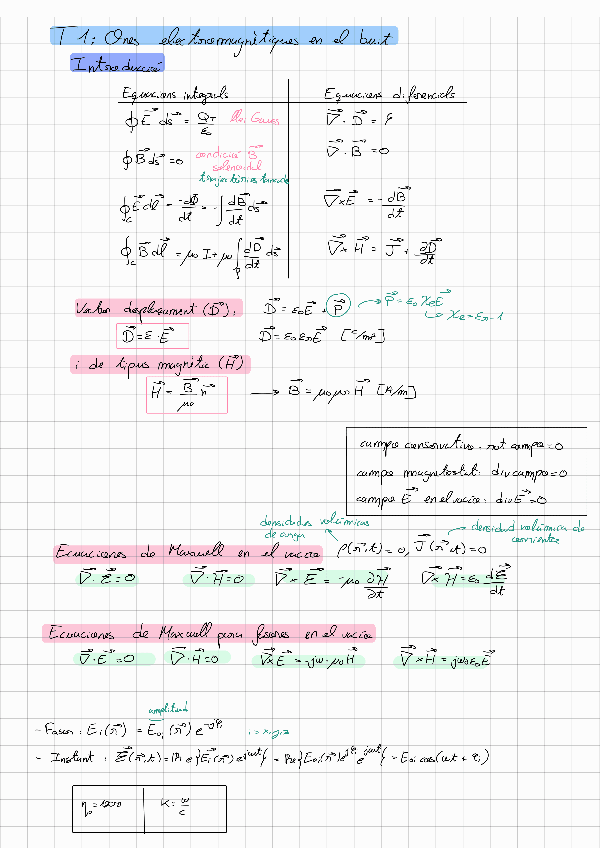 T1: Ones electromagnètiques en el buit
Introducció
Equacions integrals
Equacions diferencials
∮ E⃗ ds⃗ = QT/ε₀ llei Gauss
∇⃗ · D⃗ = ρ
∮ B⃗ ds⃗ = 0 condició B⃗ solenoidal
∇⃗ · B⃗ = 0
∮c E⃗ dl⃗ = -dΦ/dt = -∫ dB⃗/dt ds⃗
∇⃗ x E⃗ = -dB⃗/dt
∮c B⃗ dl⃗ = μ₀ I + μ₀ ∫ dD⃗/dt ds⃗
∇⃗ x H⃗ = J⃗ + ∂D⃗/∂t
Vector desplaçament (D⃗): D⃗ = ε₀E⃗ + P⃗ → P⃗ = ε₀ χe E⃗
↳ χe = εr - 1
D⃗ = ε · E⃗
D⃗ = ε₀ εr E⃗ [C/m²]
i de tipus magnètic (H⃗)
H⃗ = B⃗/μ₀ - m⃗ → B⃗ = μ₀ μr H⃗ [A/m]
campo conservativo: rot campo = 0
campo magnetostat: div campo = 0
campo E⃗ en el vacío: div E⃗ = 0
densidades volúmicas
de carga
densidad volúmica de
corrientes
Ecuaciones de Maxwell en el vacío ρ(r⃗,t) = 0, J⃗(r⃗,t) = 0
∇⃗ · E⃗ = 0 ∇⃗ · H⃗ = 0 ∇⃗ x E⃗ = -μ₀ ∂H⃗/∂t ∇⃗ x H⃗ = ε₀ dE⃗/dt
Ecuaciones de Maxwell para fasores en el vacío
∇⃗ · E⃗ = 0 ∇⃗ · H⃗ = 0 ∇⃗ x E⃗ = -jω · μ₀ H⃗ ∇⃗ x H⃗ = jω ε₀ E⃗
amplitud
- Fasor: Ei(r⃗) = E₀i(r⃗) e^-jφi i = x,y,z
- Instant: E⃗(r⃗,t) = Re{E⃗i(r⃗) e^jωt} = Re{E₀i(r⃗) e^jφi e^jωt} = E₀i cos(ωt + φi)
η₀ = 120π
K = ω/c